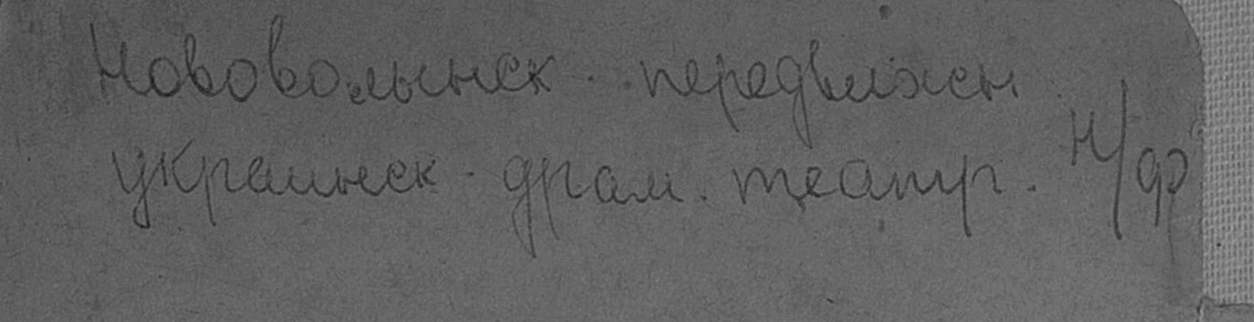 Нововолынск. передвижн
украинск. драм. театр. Н/ф